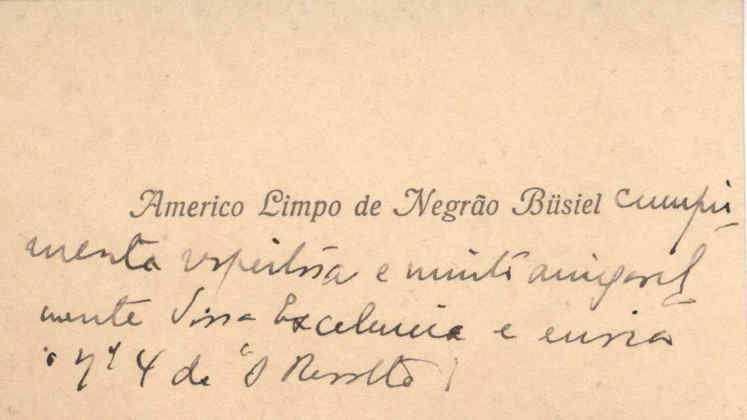 Americo Limpo de Negrão Büsiel cumpri-
menta respeitosa e muito amigavel-
mente Vossa Excelencia e envia
o nº 4 de "O